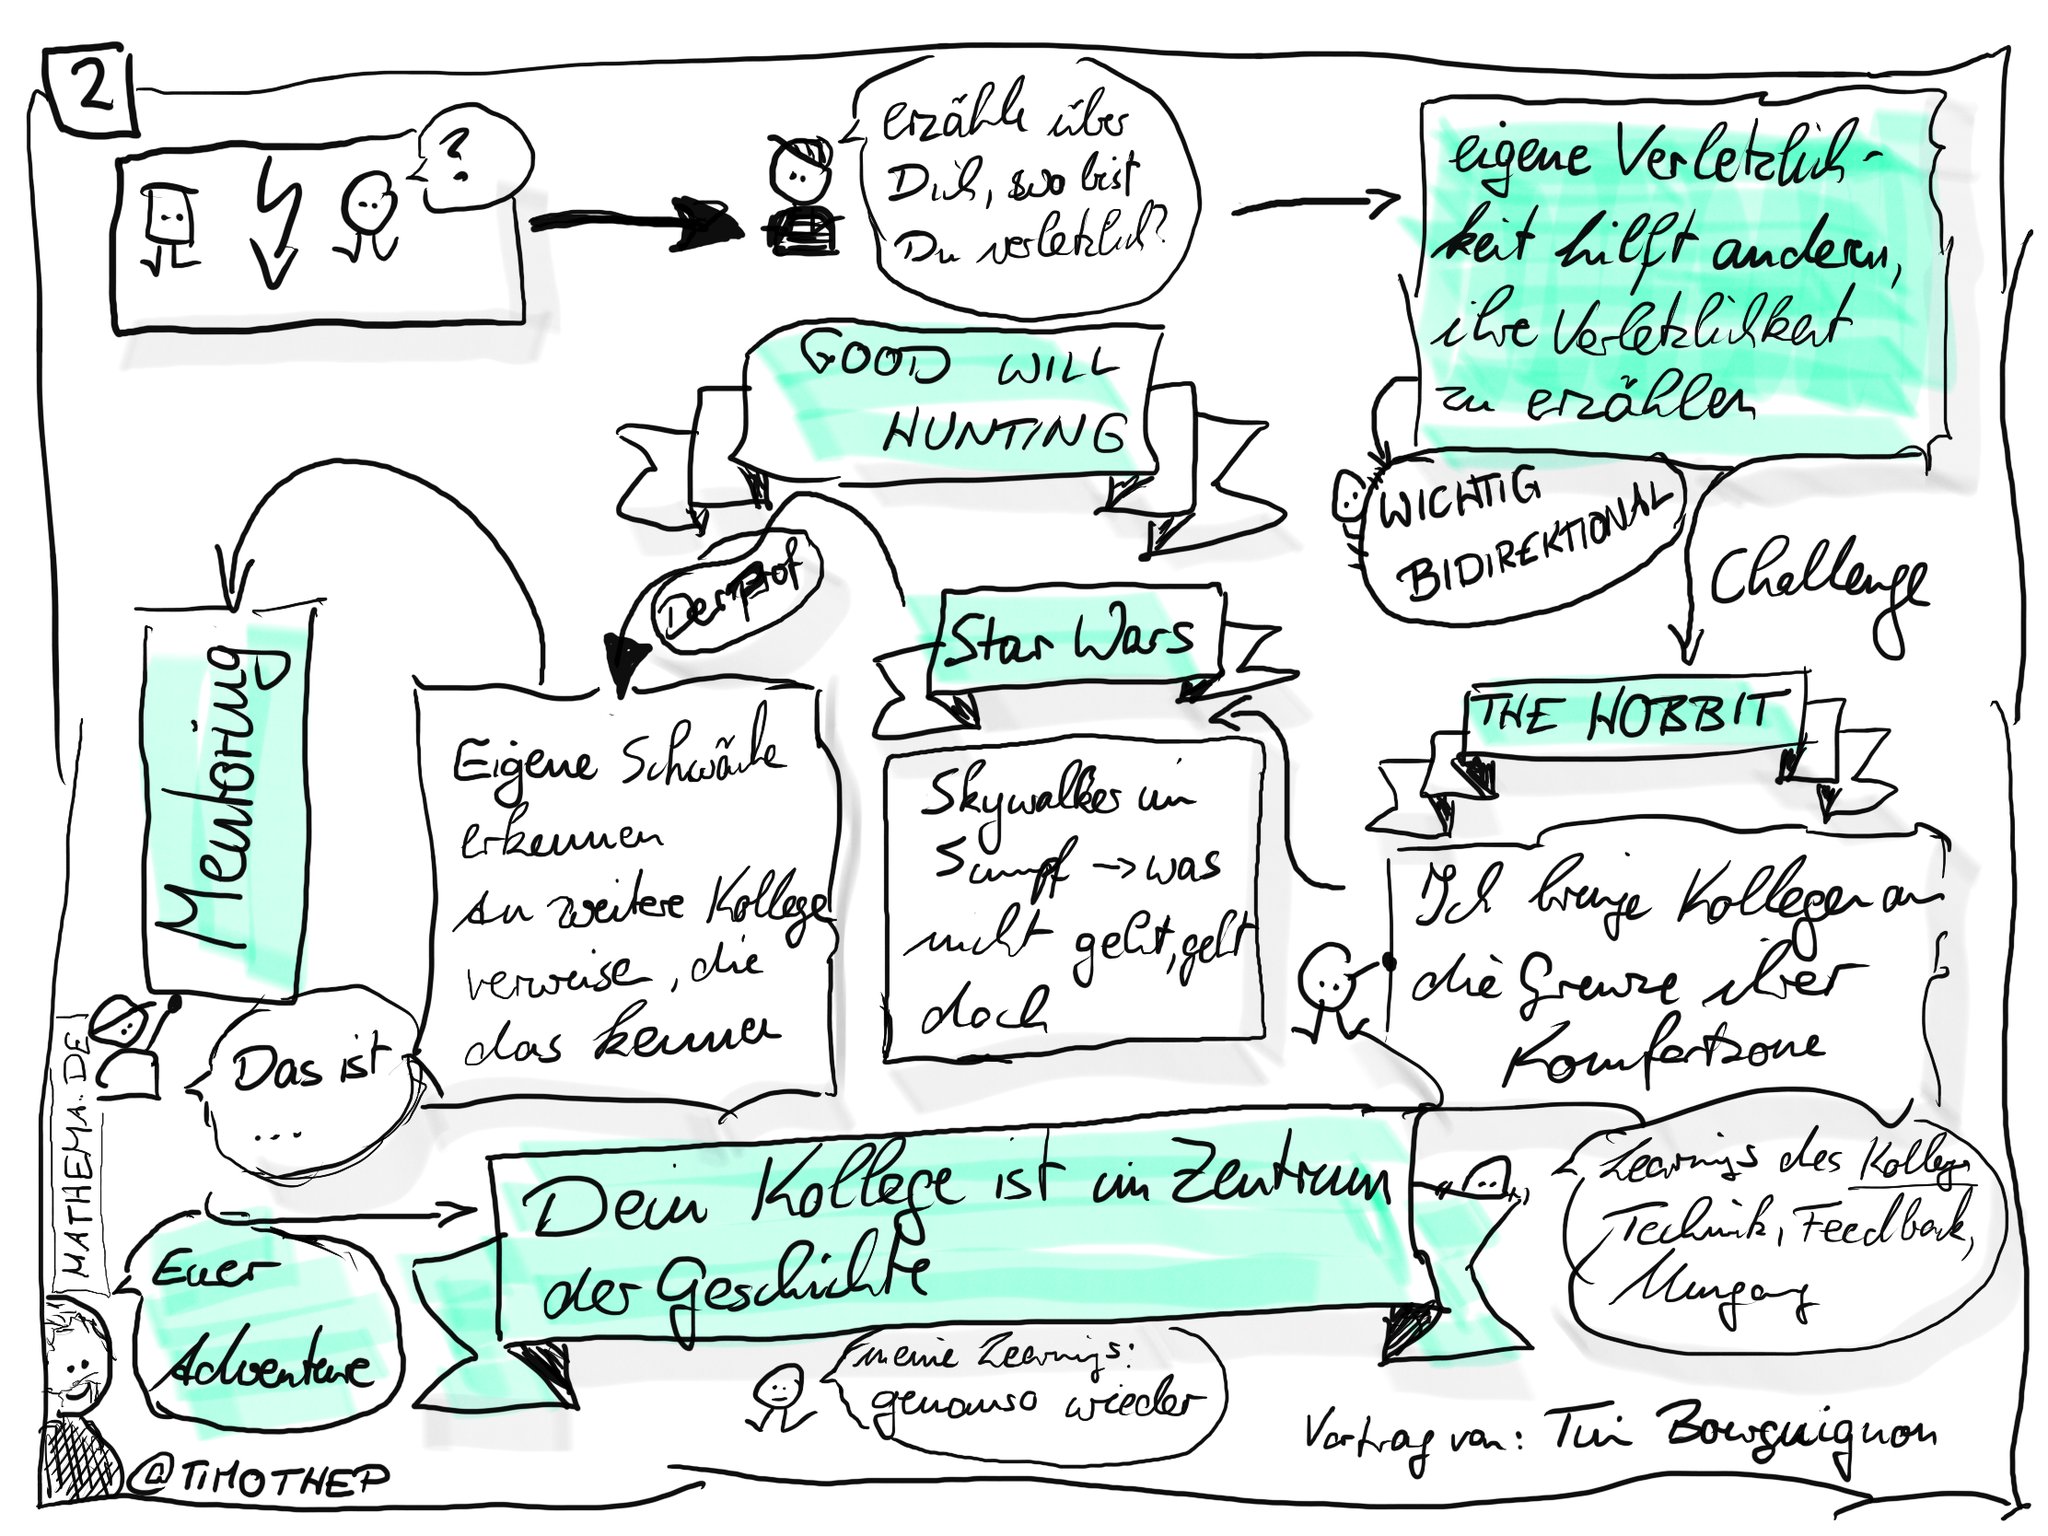 2
?
erzähle über
Dich, wo bist
Du verletzlich?
eigene Verletzlich-
keit hilft andern,
ihre Verletzlichkeit
zu erzählen
GOOD WILL
HUNTING
WICHTIG
BIDIREKTIONAL
Challenge
Der Prof
Star Wars
THE HOBBIT
Mentoring
Eigene Schwäche
erkennen
An weitere Kollege
verweise, die
das kennen
Skywalker im
Sumpf -> was
nicht geht, geht
doch
Ich bringe Kollegen an
die Grenze ihrer
Komfortzone
Das ist
...
MATHEMA.DE
Dein Kollege ist im Zentrum
der Geschichte
Learnings des Kollege
Technik, Feedback,
Euer
Adventure
meine Learnings:
genauso wieder
Vortrag von: Tim Bourguignon
@TIMOTHEP